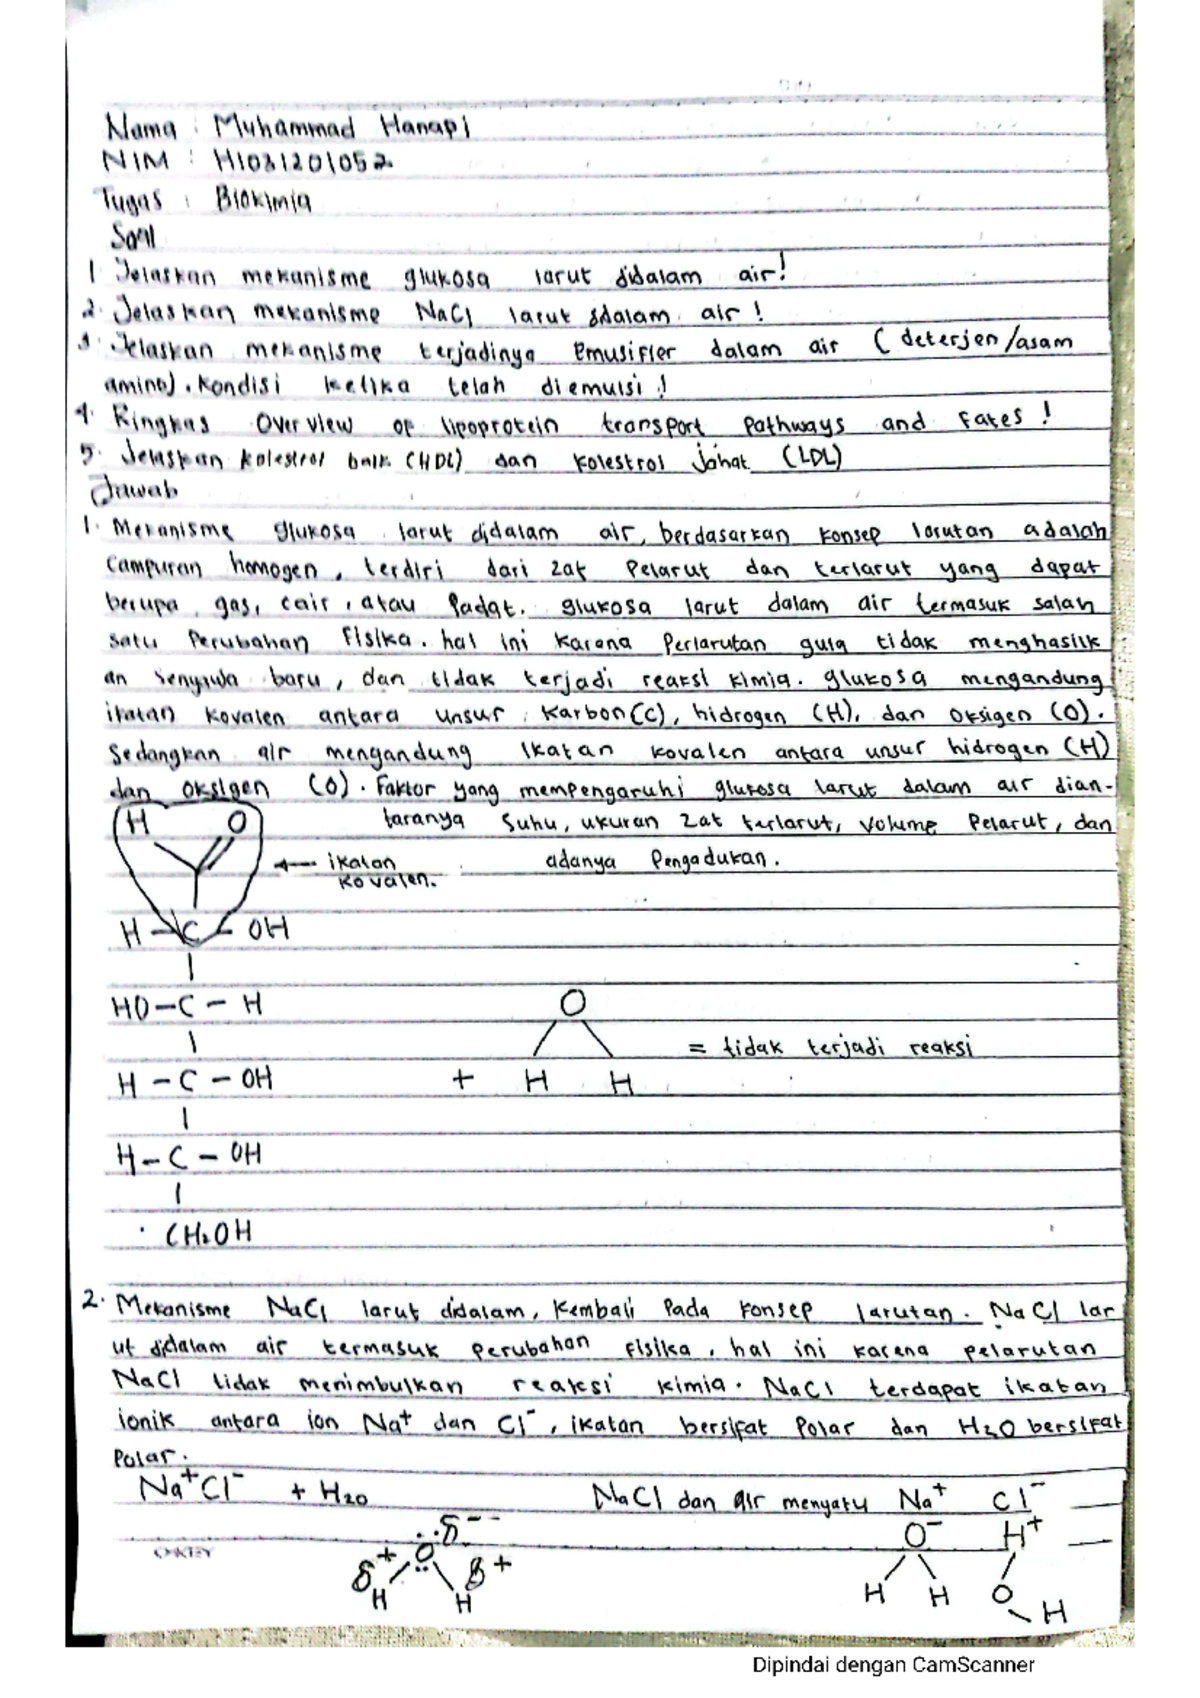 Nama : Muhammad Hanapi
NIM : H1031201052
Tugas : Biokimia
Soal
1 Jelaskan mekanisme glukosa larut didalam air!
2. Jelaskan mekanisme NaCl larut ddalam air !
3. Jelaskan mekanisme terjadinya Emusifier dalam air ( deterjen/asam
amino). Kondisi ketika telah diemulsi !
4. Ringkas Overview of lipoprotein transport pathways and Fates !
5. Jelaskan kolestrol baik (HDL) dan kolestrol jahat (LDL)
Jawab
1. Mekanisme glukosa larut didalam air, berdasarkan konsep larutan adalah
campuran homogen, terdiri dari zat pelarut dan terlarut yang dapat
berupa gas, cair, atau Padat. glukosa larut dalam air termasuk salah
satu perubahan fisika. hal ini karena perlarutan gula tidak menghasilk
an senyawa baru, dan tidak terjadi reaksi kimia. glukosa mengandung
ikatan kovalen antara unsur karbon(C), hidrogen (H), dan oksigen (O).
Sedangkan air mengandung ikatan kovalen antara unsur hidrogen (H)
dan oksigen (O). Faktor yang mempengaruhi glukosa larut dalam air dian-
taranya suhu, ukuran zat terlarut, volume pelarut, dan
adanya pengadukan.
H O
← ikatan
kovalen.
H - C - OH
HO - C - H
O
= tidak terjadi reaksi
H - C - OH + H H
H - C - OH
CH₂OH
2. Mekanisme NaCl larut didalam, kembali pada konsep larutan. NaCl lar
ut didalam air termasuk perubahan fisika, hal ini karena pelarutan
NaCl tidak menimbulkan reaksi kimia. NaCl terdapat ikatan
ionik antara ion Na⁺ dan Cl⁻, ikatan bersifat polar dan H₂O bersifat
polar.
Na⁺Cl⁻ + H₂O NaCl dan air menyatu Na⁺ Cl⁻
δ⁻⁻ O⁻ H⁺
δ⁺ O δ⁺
H H H H O H
OKEY
Dipindai dengan CamScanner